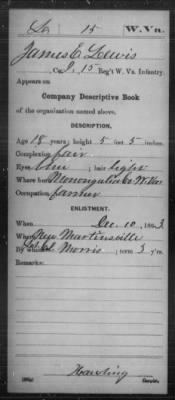 L 15 W.Va.
James E Lewis
Co. I, 15 Reg't W. Va. Infantry.
Appears on
Company Descriptive Book
of the organization named above.
DESCRIPTION.
Age 18 years; height 5 feet 5 inches.
Complexion fair
Eyes blue; hair light
Where born Monongalia Co W. Va
Occupation farmer
ENLISTMENT.
When Dec. 10, 1863
Where New Martinsville
By whom Morris; term 3 y'rs.
Remarks:
Harding
Copyist.